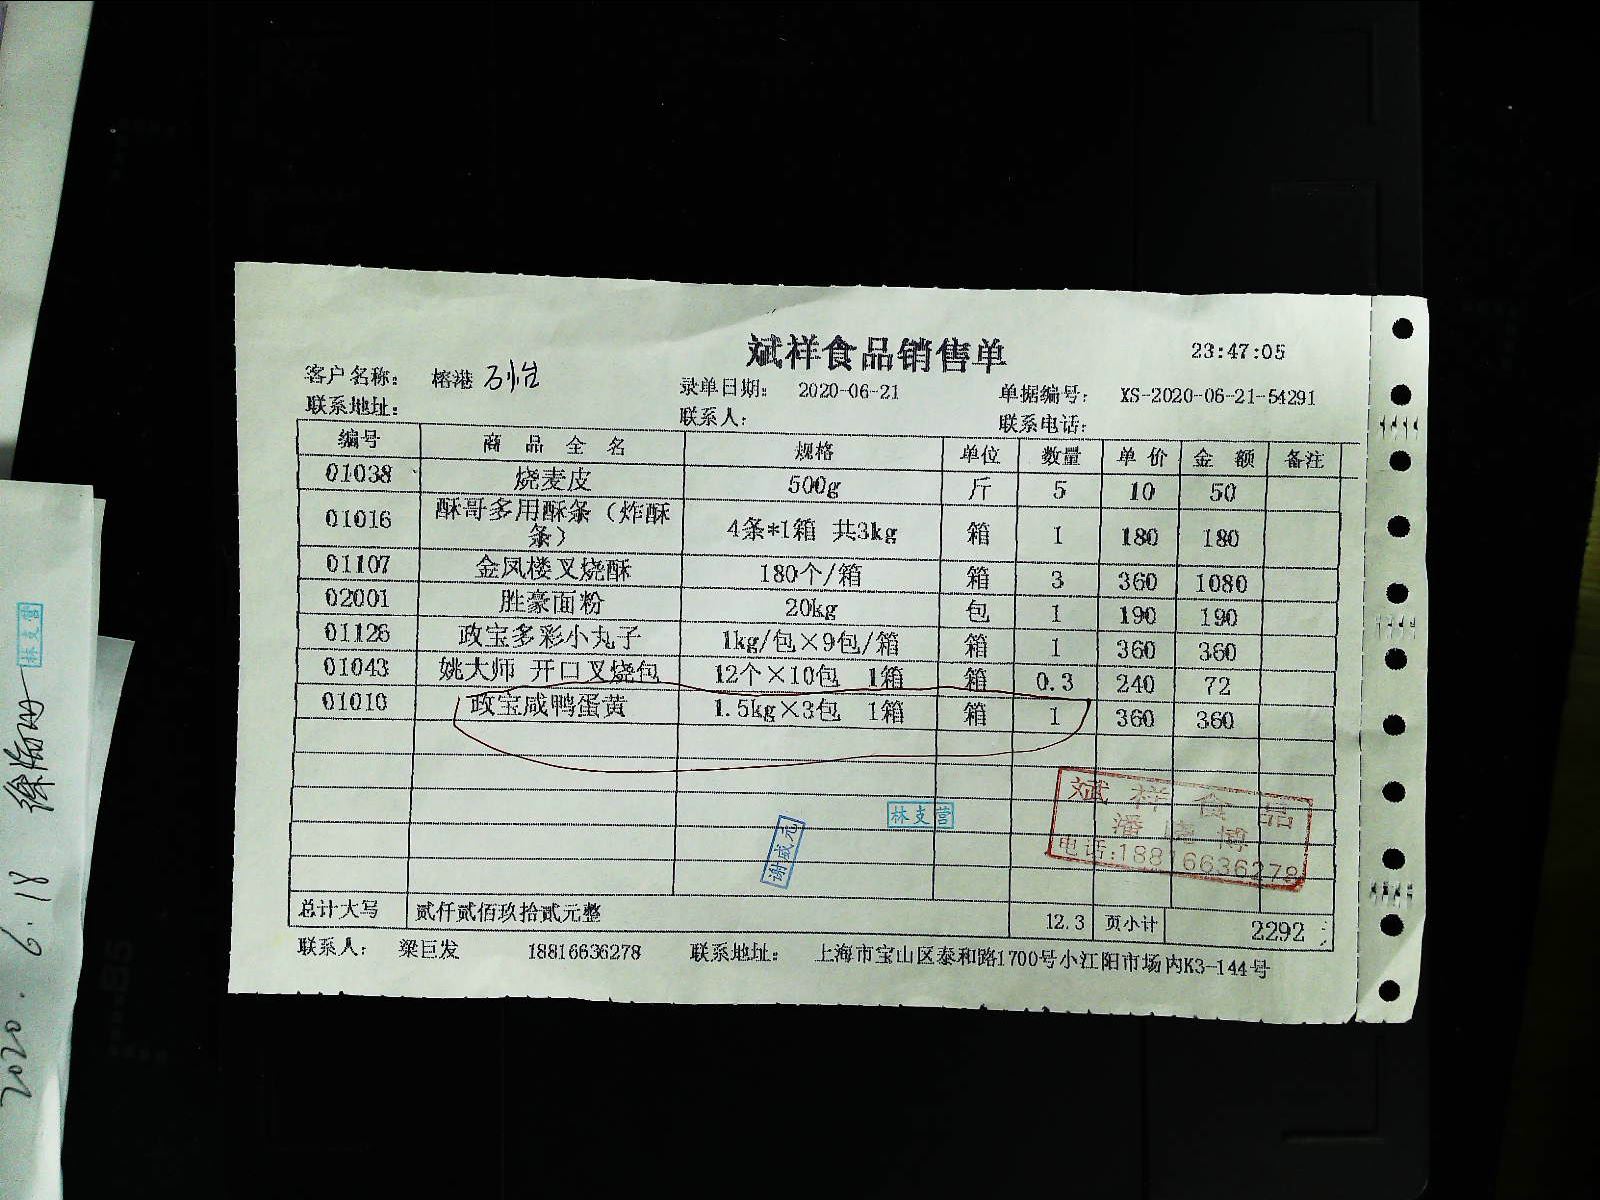 斌祥食品销售单
23:47:05
客户名称： 榕港
录单日期： 2020-06-21
单据编号： XS-2020-06-21-54291
联系地址：
联系人：
联系电话：
编号 商 品 全 名 规格 单位 数量 单 价 金 额 备注
01038 烧麦皮 500g 斤 5 10 50
01016 酥哥多用酥条（炸酥条） 4条*1箱 共3kg 箱 1 180 180
01107 金凤楼叉烧酥 180个/箱 箱 3 360 1080
02001 胜豪面粉 20kg 包 1 190 190
01126 政宝多彩小丸子 1kg/包×9包/箱 箱 1 360 360
01043 姚大师 开口叉烧包 12个×10包 1箱 箱 0.3 240 72
01010 政宝咸鸭蛋黄 1.5kg×3包 1箱 箱 1 360 360
斌祥食品
潘 博
电话:18816636278
林支营
谢威元
总计大写 贰仟贰佰玖拾贰元整 12.3 页小计 2292
联系人： 梁巨发 18816636278 联系地址： 上海市宝山区泰和路1700号小江阳市场内K3-144号
林支营
2020.6.18